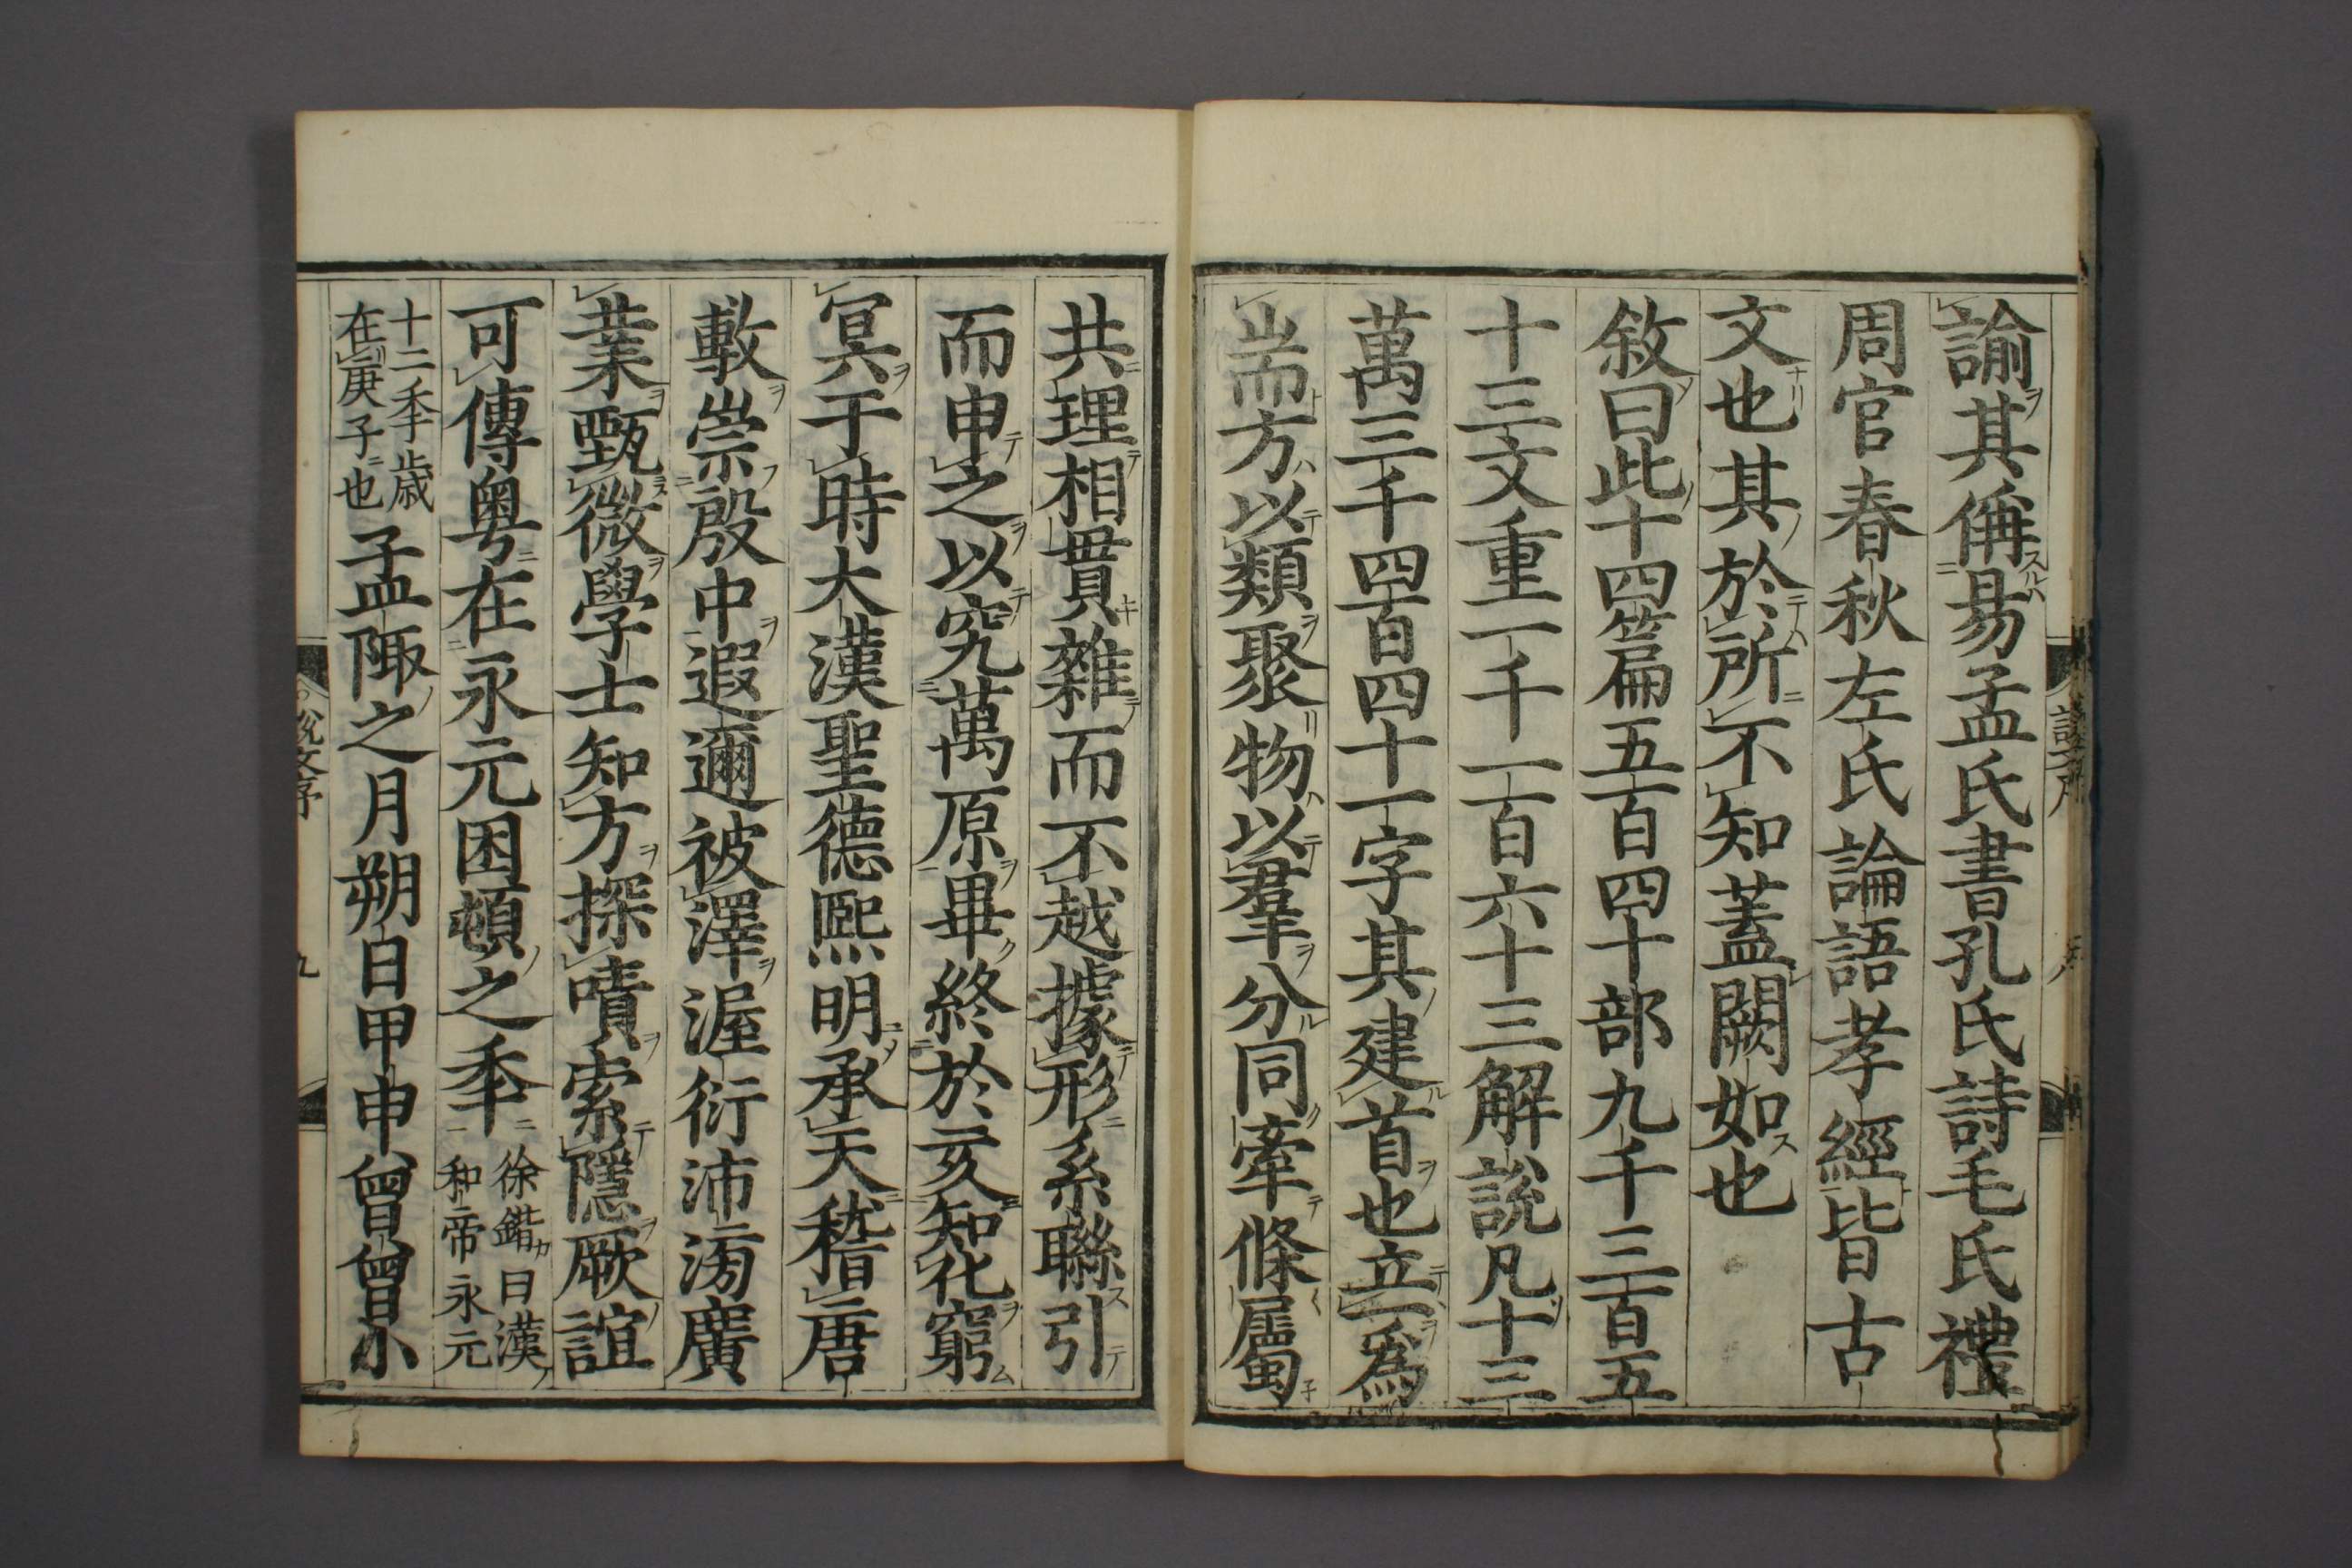 諭其偁易孟氏書孔氏詩毛氏禮
周官春秋左氏論語孝經皆古
文也其於所不知蓋闕如也
敘曰此十四篇五百四十部九千三百五
十三文重一千一百六十三解說凡十三
萬三千四百四十一字其建首也立一爲
耑而方以類聚物以羣分同牽條屬
共理相貫雜而不越據形系聯引
而申之以究萬原畢終於亥知化窮
冥于時大漢聖德熙明承天稽唐
敷崇殷中遐邇被澤渥衍沛滂廣
業甄微學士知方探嘖索隱厥誼
可傳粵在永元困頓之秊
徐鍇曰漢
和帝永元
十二秊歲
在庚子也
孟陬之月朔日甲申曾曾小
說文序
九